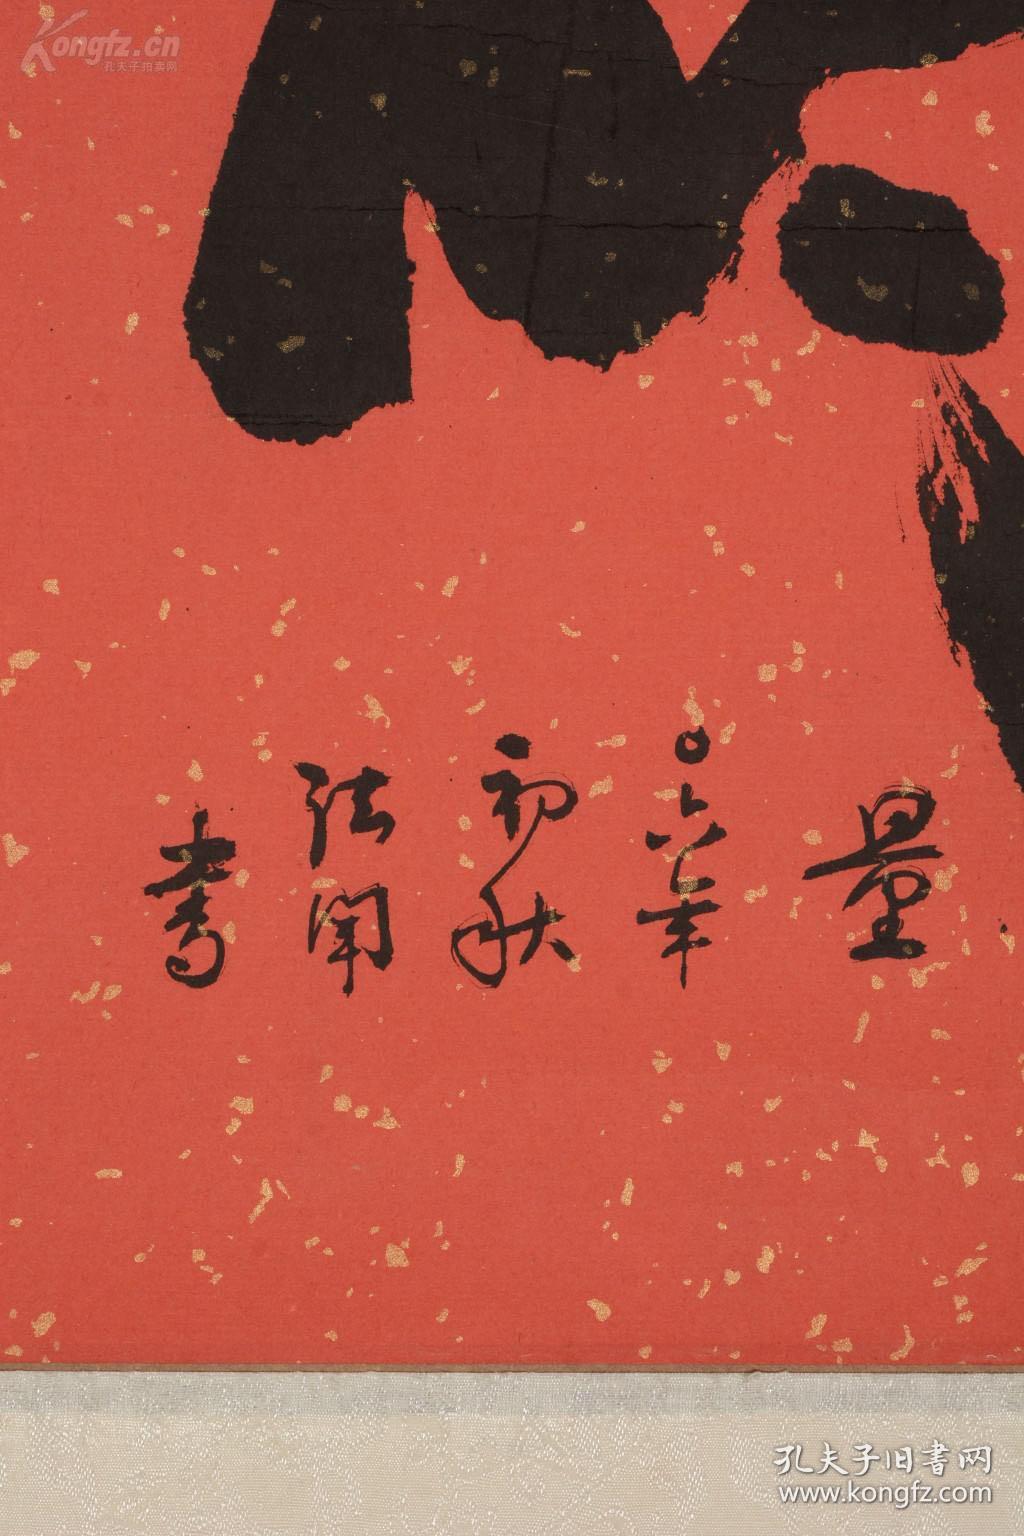 Kongfz.cn
孔夫子拍卖网
量
〇六年
初秋
法闻
书
孔夫子旧書网
www.kongfz.com